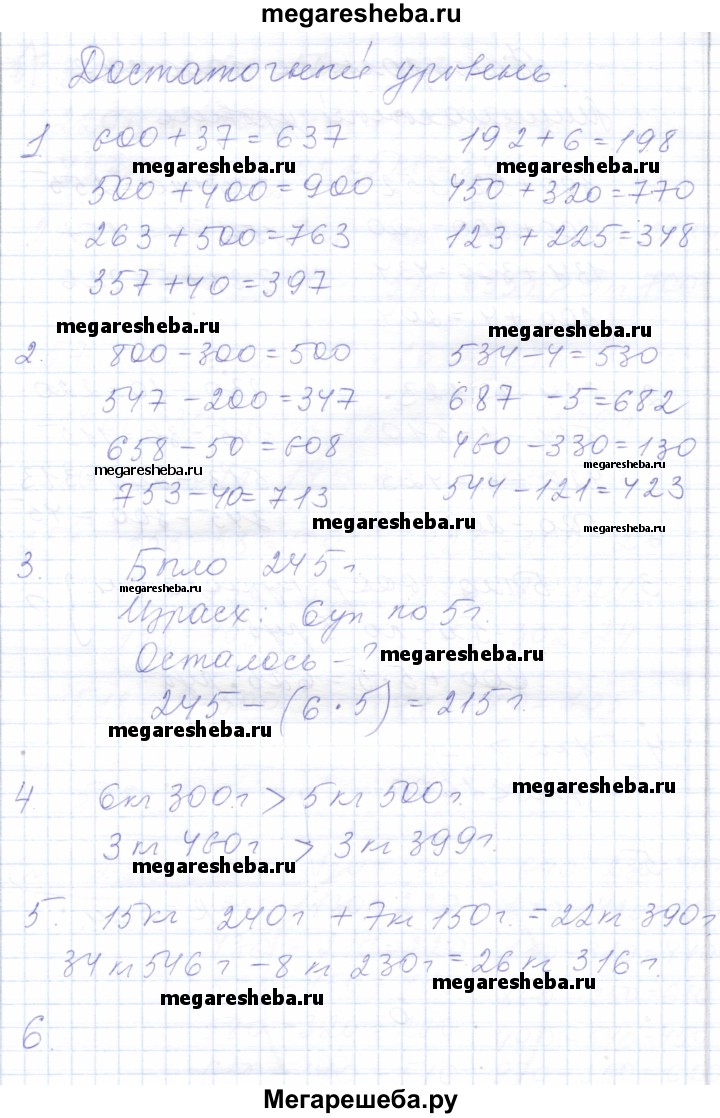 megaresheba.ru
Достаточный уровень.
1 600 + 37 = 637 192 + 6 = 198
megaresheba.ru megaresheba.ru
500 + 400 = 900 450 + 320 = 770
263 + 500 = 763 123 + 225 = 348
357 + 40 = 397
megaresheba.ru megaresheba.ru
2. 800 - 300 = 500 534 - 4 = 530
547 - 200 = 347 687 - 5 = 682
658 - 50 = 608 460 - 330 = 130
megaresheba.ru megaresheba.ru
753 - 40 = 713 544 - 121 = 423
megaresheba.ru megaresheba.ru
3. Было 245 г.
megaresheba.ru
Израсх: 6 уп по 5 г.
Осталось - ? megaresheba.ru
245 - (6 · 5) = 215 г.
megaresheba.ru
4. 6 кг 300 г > 5 кг 500 г.
megaresheba.ru
3 кг 460 г > 3 кг 399 г.
megaresheba.ru
5. 15 кг 240 г + 7 кг 150 г. = 22 кг 390 г
34 кг 546 г - 8 кг 230 г = 26 кг 316 г.
megaresheba.ru megaresheba.ru
6.
Мегарешеба.ру